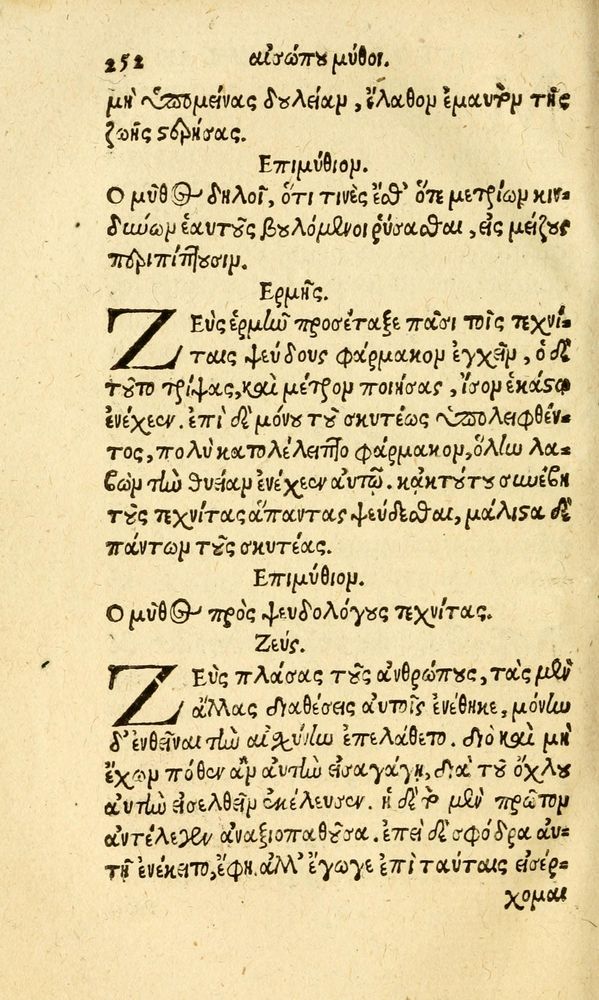 252 αἰσώπου μύθοι.
μὴ ὑπομείνας δουλείαν, ἔλαθον ἐμαυτὸν τῆς
ζωῆς στερήσας.
Επιμύθιον.
Ο μῦθος δηλοῖ, ὅτι τινὲς ἔσθ' ὅτε μετρίων κιν-
δύνων ἑαυτοὺς βουλόμενοι ῥύσασθαι, εἰς μείζους
περιπίπτουσιν.
Ερμῆς.
ΖΕὺς ἑρμῆν προσέταξε πᾶσι τοῖς τεχνί-
ταις ψεύδους φάρμακον ἐγχεῖν, ὁ δὲ
τοῦτο τρίψας, καὶ μέτρον ποιήσας, ἴσον ἑκάστῳ
ἐνέχεεν. ἐπὶ δὲ μόνου τοῦ σκυτέως ὑπολειφθέν-
τος, πολὺ κατολέλειπτο φάρμακον, ὅλην λα-
βὼν τὴν θυείαν ἐνέχεεν αὐτῷ. κἀκ τούτου συνέβη
τοὺς τεχνίτας ἅπαντας ψεύδεσθαι, μάλιστα δὲ
πάντων τοὺς σκυτέας.
Επιμύθιον.
Ο μῦθος πρὸς ψευδολόγους τεχνίτας.
Ζεύς.
ΖΕὺς πλάσας τοὺς ἀνθρώπους, τὰς μὲν
ἄλλας διαθέσεις αὐτοῖς ἐνέθηκε, μόνην
δ' ἐνθεῖναι τὴν αἰσχύνην ἐπελάθετο. διὸ καὶ μὴ
ἔχων πόθεν ἂν αὐτὴν εἰσαγάγῃ, διὰ τοῦ ὄχλου
αὐτὴν εἰσελθεῖν ἐκέλευσεν. ἡ δὲ τὸ μὲν πρῶτον
ἀντέλεγεν ἀναξιοπαθοῦσα. ἐπεὶ δὲ σφόδρα αὐ-
τῇ ἐνέκειτο, ἔφη. ἀλλ' ἔγωγε ἐπὶ ταύταις εἰσέρ-
χομαι